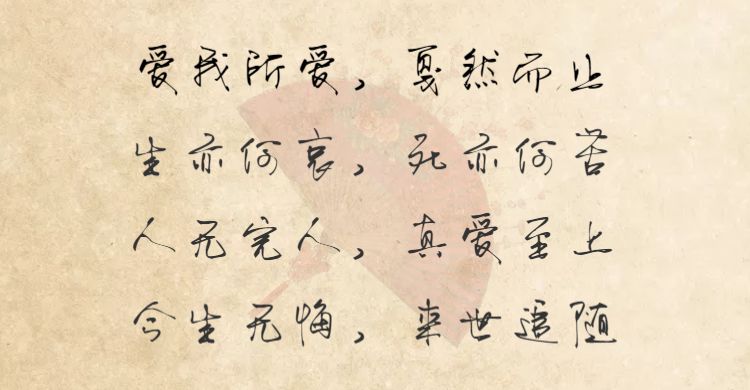 爱我所爱，戛然而止
生亦何哀，死亦何苦
人无完人，真爱至上
今生无悔，来世追随